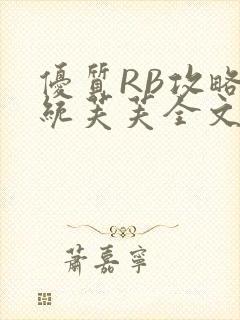 優質RB攻略
統芙芙全文
蕭嘉寧